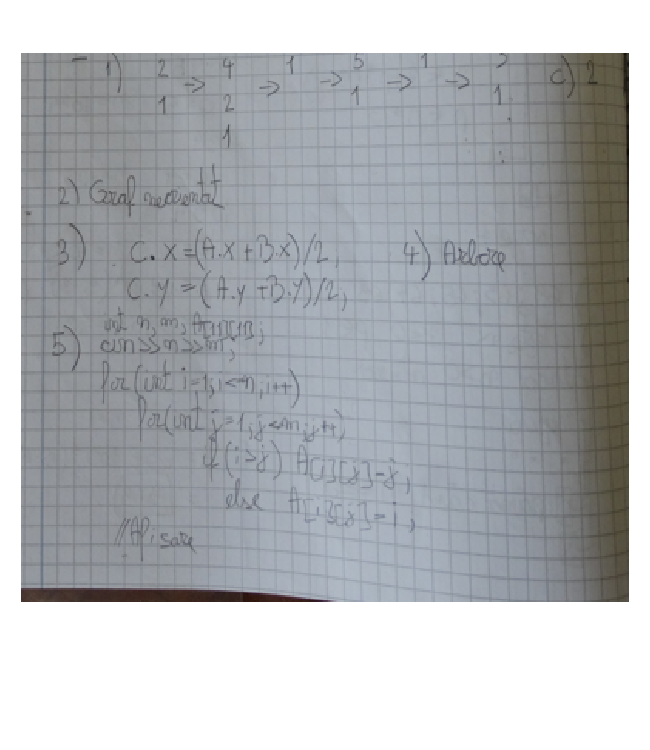 1) 2 → 4 → 1 → 5 → 1 → 5 c) 2
1 2 1 1
1
2) Graf neorientat
3) C.x=(A.x+B.x)/2; 4) Arbore
C.y=(A.y+B.y)/2;
5) int n, m, A[][];
cin>>n>>m;
for(int i=1;i<=n;i++)
for(int j=1;j<=m;j++)
if(i>j) A[i][j]=j;
else A[i][j]=i;
//Afisare